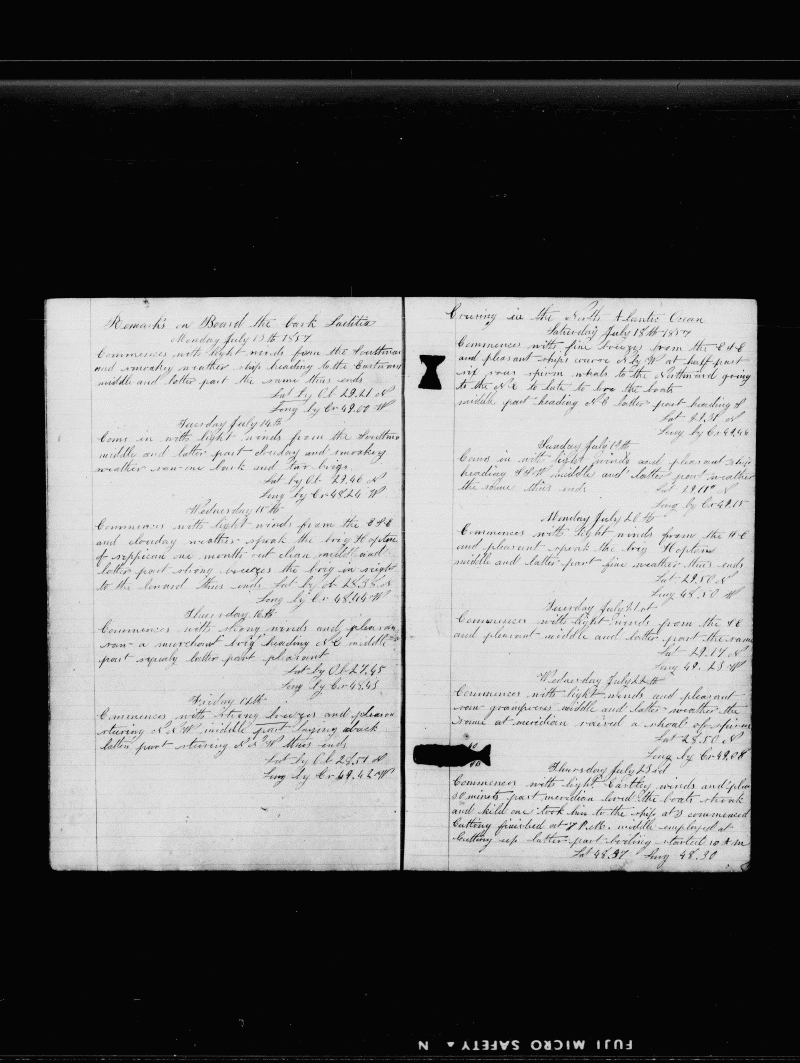 Remarks on Board the bark Laetitia
Monday July 13th 1857
Commences with light winds from the Southward
and smokey weather ship heading to the Eastward
middle and latter part the same thus ends
Lat by Ob 29.21 N
Long by Cr 49.00 W
Tuesday July 14th
Coms in with light winds from the Southard
middle and latter part clouday and smokey
weather saw one bark and two brigs
Lat by Ob 29.46 N
Long by Cr 48.24 W
Wednesday 15th
Commences with light winds from the ESE
and clouday weather spoak the brig Hopton
of sippican one months out clean middle and
latter part strong breezes the brig in sight
to the leward thus ends Lat by Ob 28.38 N
Long by Cr 48.44 W
Thursday 16th
Commences with strong winds and pleasan
saw a merchant brig heading NE middle
part squaly latter part pleasant
Lat by Ob 27.45
Long by Cr 48.43
Friday 17th
Commences with strong breezes and pleasan
stering NNW middle part laying aback
latter part stering NNW thus ends
Lat by Ob 28.51 N
Long by Cr 49.42 W
Crusing in the North Atlantic Ocean
Saturday July 18th 1857
Commences with fine breezes from the ESE
and pleasant ships corse N by W at half past
six saw sperm whals to the Northward going
to the NE to late to low the boats
middle part heading NE latter part heading S
Lat 29.31 N
Long by Cr 49.46
Sunday July 19th
Coms in with light winds and pleasant ship
heading SSW middle and latter part weather
the same thus ends Lat 29.11 N
Long by Cr 49.15
Monday July 20th
Commences with light winds from the
and pleasent spoak the brig Hopton
middle and latter part fine weather thus ends
Lat 29.50 N
Long 48.50 W
Tuesday July 21st
Commences with light winds from the SE
and pleasant middle and latter part the same
Lat 29.07 N
Long 49.23 W
Wednesday July 22th
Commences with light winds and pleasant
saw grampuses middle and latter weather the
same at meridian raised a shoal of sperm
Lat 28.50 N
Long by Cr 49.08
40
80
Thursday July 23rd
Commences with light Eartley winds and plea
30 minits past meridian lowd the boats struck
and kild one took him to the ship at 3 commenced
Cutting finished at 7 P.M. middle employed at
Cutting up latter part boiling started 10 A M
Lat 48.37 Long 48.30
FUJI MICRO SAFETY ▲ N